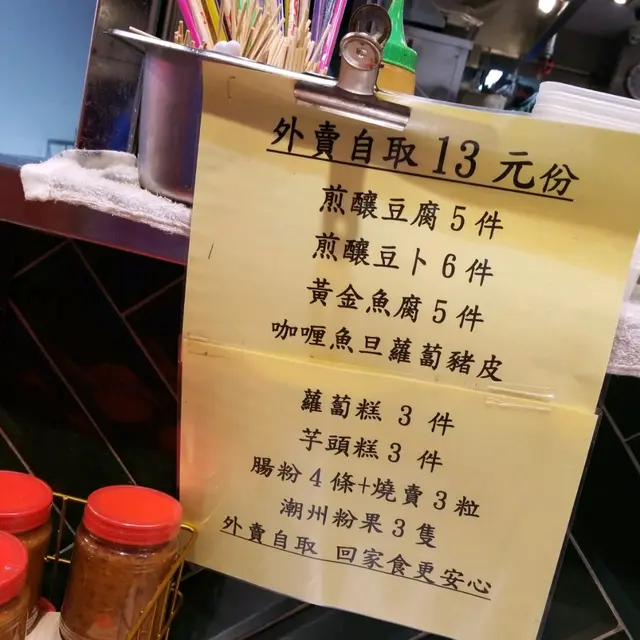 外賣自取 13 元份
煎釀豆腐 5 件
煎釀豆卜 6 件
黃金魚腐 5 件
咖喱魚旦蘿蔔豬皮
蘿蔔糕 3 件
芋頭糕 3 件
腸粉 4 條+燒賣 3 粒
潮州粉果 3 隻
外賣自取 回家食更安心